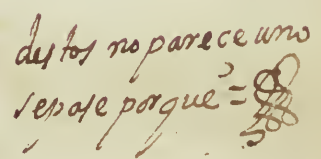 destos no parece uno
sepase porque =